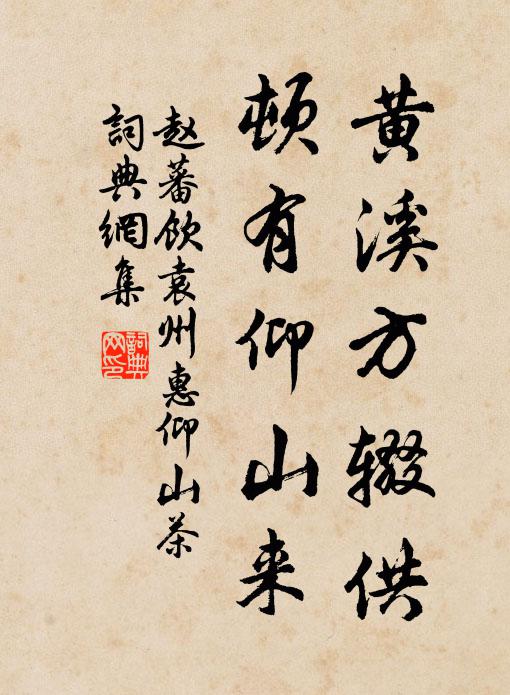 黄溪方辍供
顿有仰山来
赵蕃饮袁州惠仰山茶
詞典網集
詞典网印